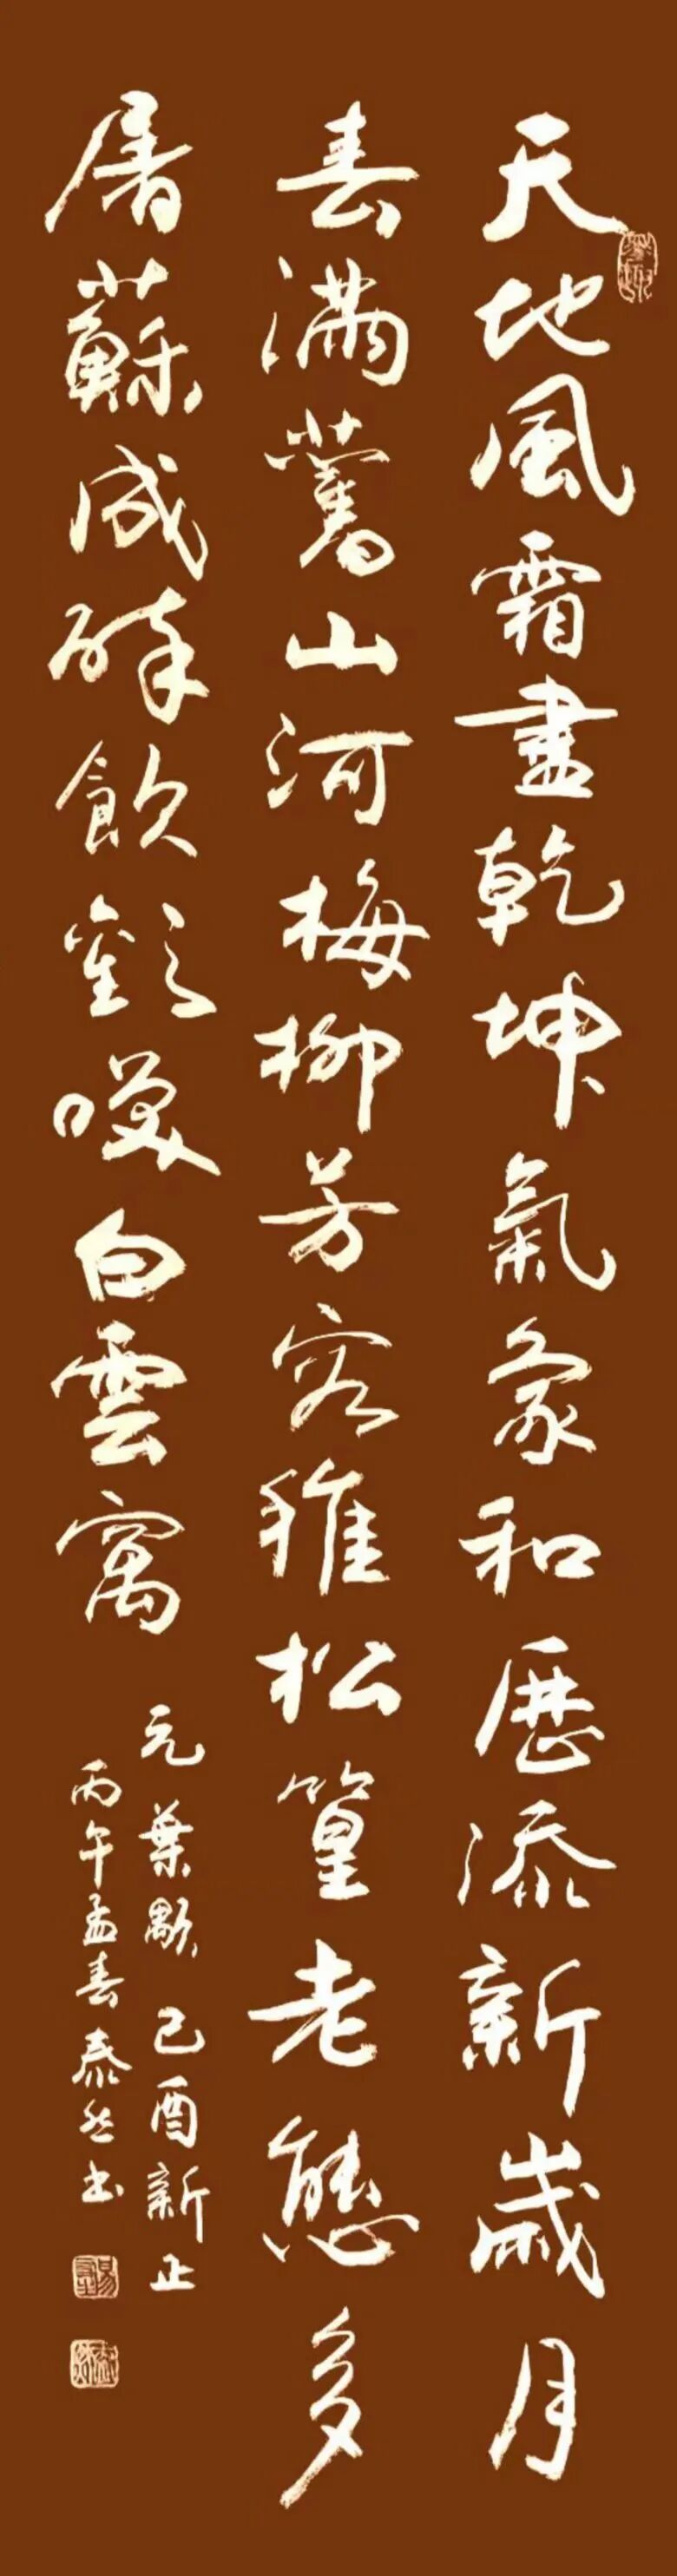 天地風霜盡乾坤氣象和歷添新歲月
春滿舊山河梅柳芳容稚松篁老態多
屠蘇成醉飲歡咲白雲窩
元葉顒己酉新正
丙午孟春泰然書